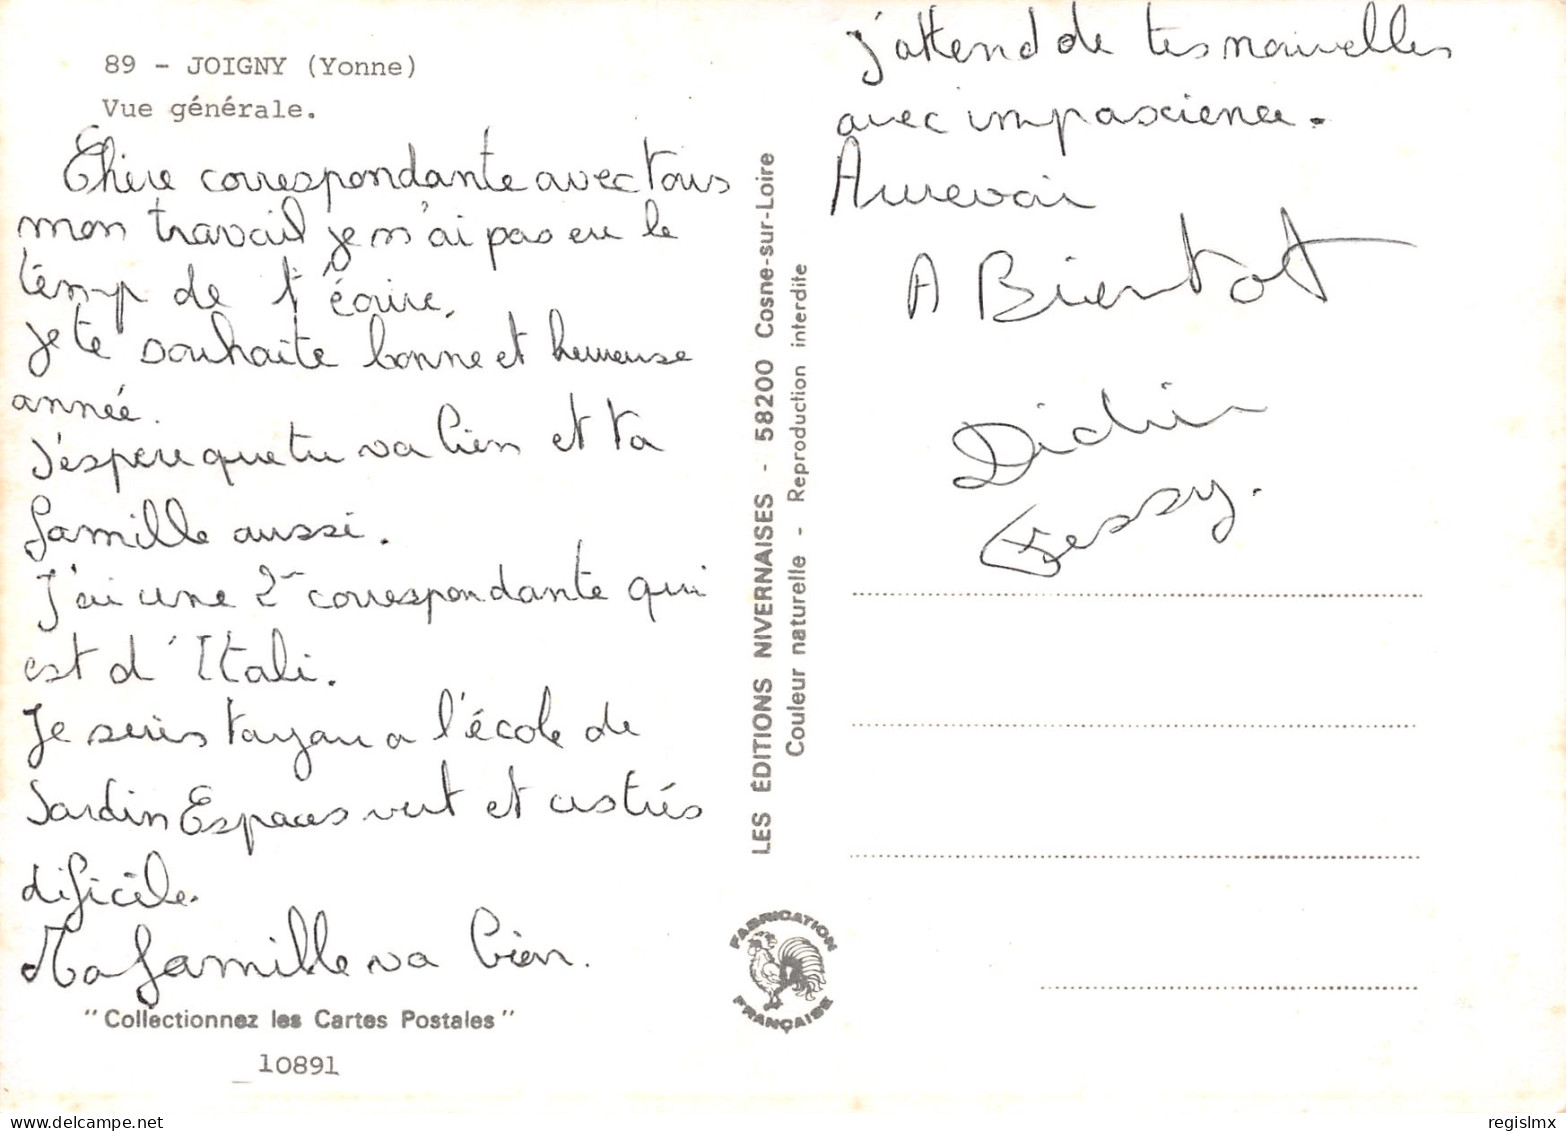 89 - JOIGNY (Yonne)
Vue générale.
Chère correspondante avec tous
mon travail je n'ai pas eu le
temp de t'écrire.
Je te souhaite bonne et heureuse
année.
J'éspère que tu va bien et ta
famille aussi.
J'ai une 2 correspondante qui
est d'Itali.
Je series a l'école de
Jardin Espaces vert et cs très
dificile.
Ma famille va bien.
"Collectionnez les Cartes Postales"
10891
LES ÉDITIONS NIVERNAISES - 58200 Cosne-sur-Loire
Couleur naturelle - Reproduction interdite
FABRICATION
FRANÇAISE
j'attend de tes nouvelles
avec impascience.
Aurevoir
A Bientot
Didier
regislmx